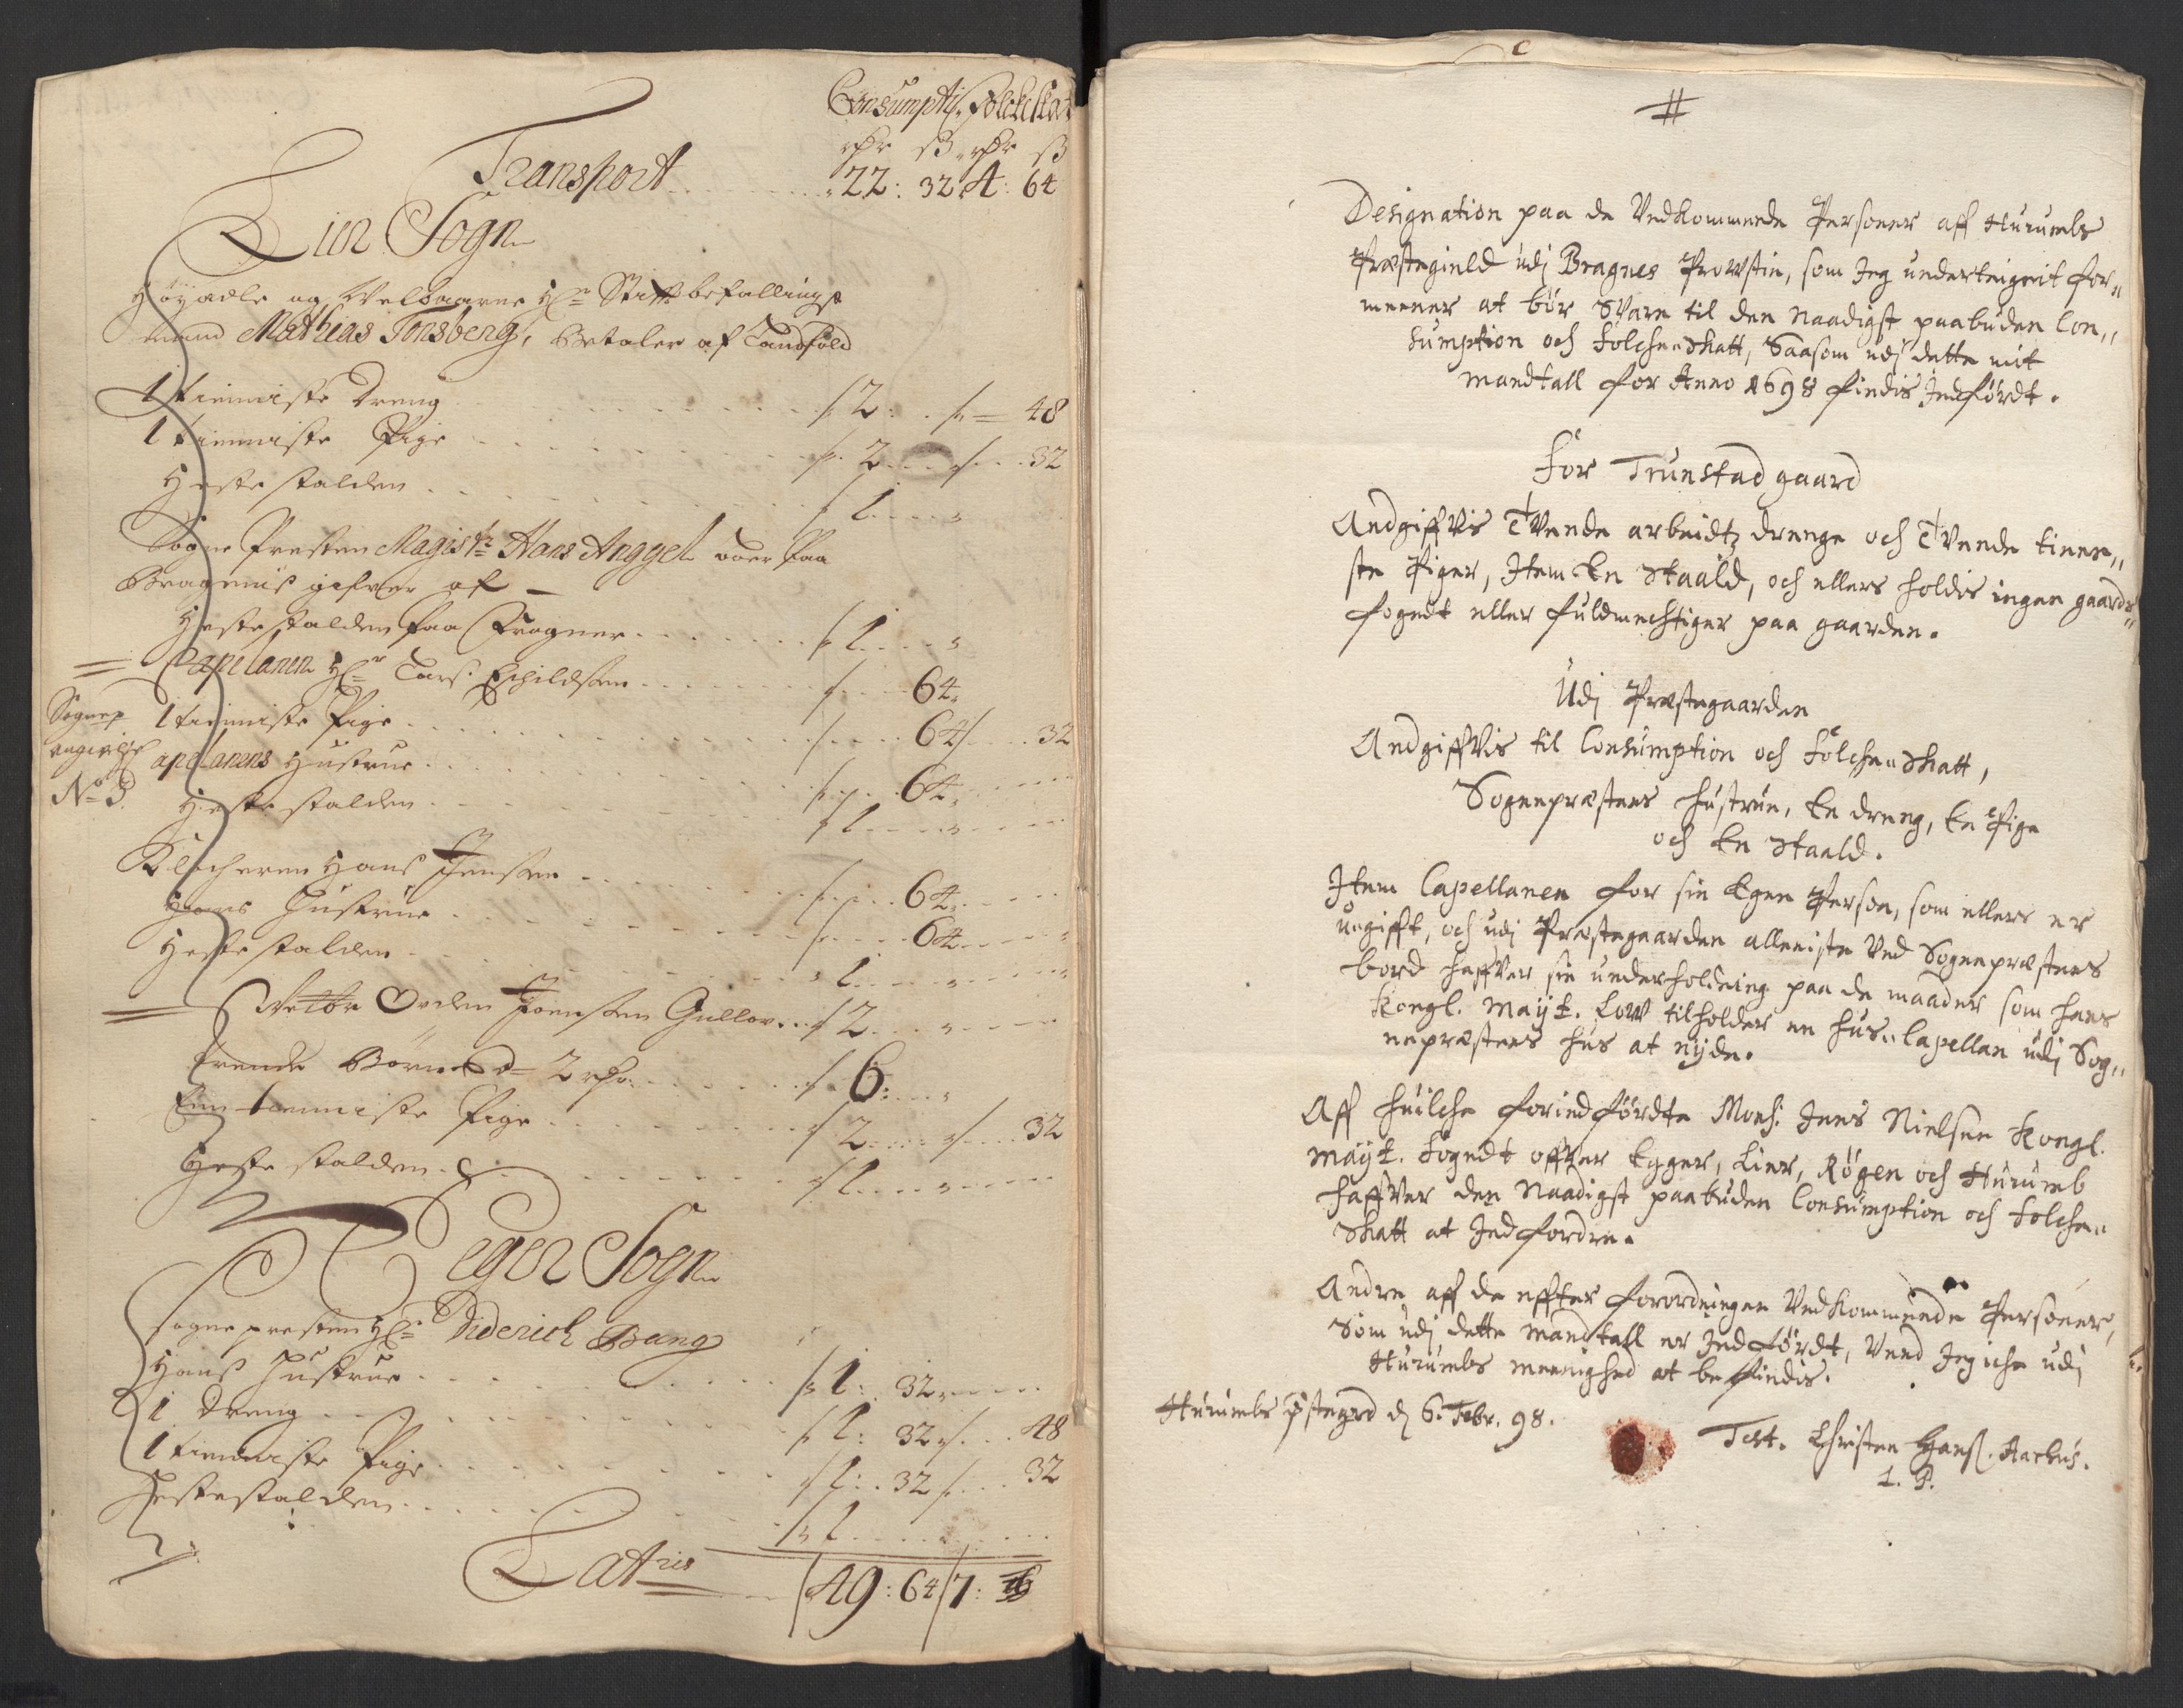 Consumpti. Folckeskat
rdr ß rdr ß
Transport 22: 32 4: 64
Lier Sogn
Høyædle og Velbaarne Hr Stiftbefallings
mand Mathias Tonsberg, betaler af Landfald
1 tienniste Dreng 2: 48
1 tienniste Pige 2 32
Hestestalden 1
Sogne Presten Magistr Hans Anggel boer paa
Bragernis gifver af
Hestestalden paa Frogner 1
Capelanen Hr Lars 64
Sognep
angivelse
No 3
1 tienniste Pige 64 32
Capelanens Hustrue 64
Hestestalden 1
Klocheren Hans Jensen 64
Hans Hustrue 64
Hestestalden 1
2
trende Børn â 2 rdr 6:
Een tienniste Pige 2 32
Heste stalden 1
Eger Sogn
Sognepresten Hr Diderich Bang
Hans Hustrue 1: 32
1 Dreng 1: 32 48
1 tienniste Pige 1: 32 32
Hestestalden 1
Latris 49: 64 7:
Designation paa de Vedkommende Personer aff Hurumbs
Præstegield udj Bragnes Prowstie, som Jeg underteignit for„
meener at bør Svare til den naadigst paabuden Con„
sumption och Folche„Skatt, Saasom udj dette mit
mandtall for Anno 1698 findis Indførdt.
For Trunstad gaard
Andgiffvis Tvende arbeidtz drenge och Tvende tiene„
ste Piger, Item En Staald, och ellers holdes ingen gaards„
fogedt eller fuldmechtiger paa gaarden.
Udj Præstegaarden
Andgiffvis til Consumption och Folche„Skatt,
Sognepræstens hustrue, En dreng, En Pige
och En Staald.
Item Capellanen for sin Egen Person, som ellers er
ungifft, och udj Præstegaarden alleniste Ved Sognepræstens
bord haffver sin underholdning paa de maader som hans
Kongl. Mayt. Low tilholder en hus„Capellan udj Sog„
nepræstens hus at nyde.
Aff huilche forindførdte Mons. Jens Nielsen Kongl.
Mayt. fogedt offver Egger, Lier, Røgen och Hurumb
haffver den Naadigst paabuden Consumption och Folche„
Skatt at Indfordre.
Andre aff de effter forordningen Vedkommende Personer,
Som udj dette mandtall er Indførdt, Veed Jeg iche udj
Hurumbs meenighed at befindis.
Hurumbs pstegrd d 6. Febr. 98.
Test. Christen Hanss. Aarhus.